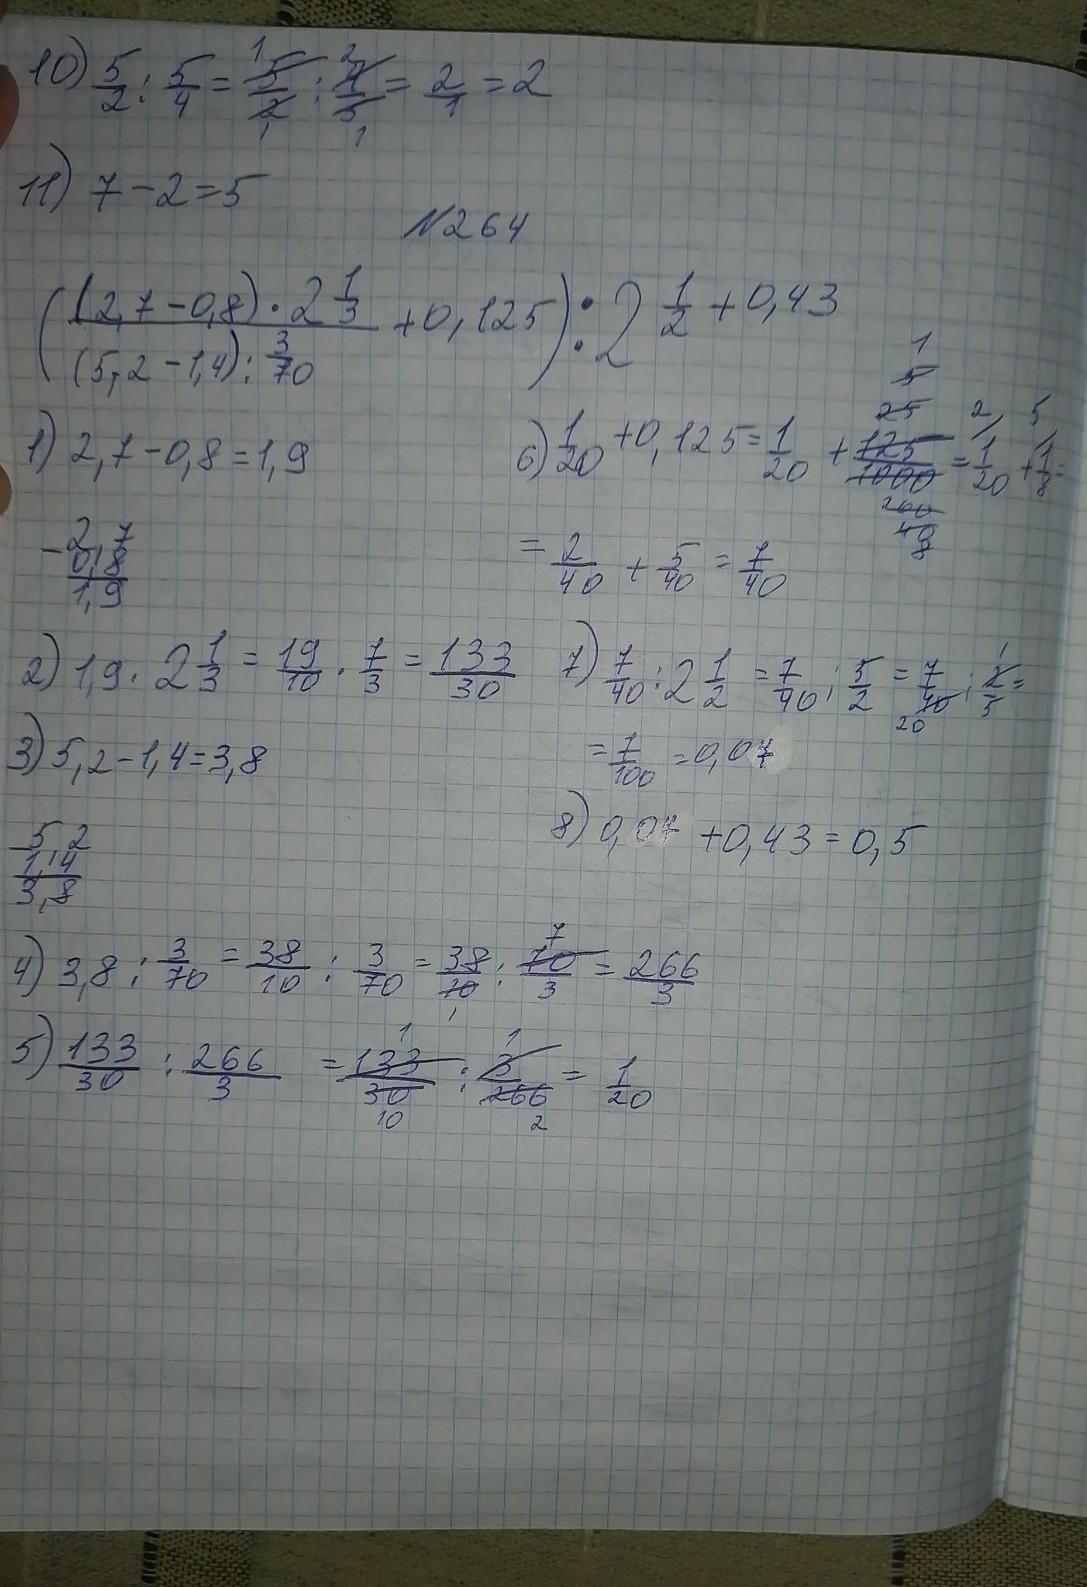 10) 5/2 : 5/4 = 5/2 : 4/5 = 2/1 = 2
11) 7 - 2 = 5
N264
((2,7 - 0,8) · 2 1/3 / (5,2 - 1,4) : 3/70 + 0,125) : 2 1/2 + 0,43
1) 2,7 - 0,8 = 1,9
- 2,7
0,8
1,9
2) 1,9 · 2 1/3 = 19/10 · 7/3 = 133/30
3) 5,2 - 1,4 = 3,8
5,2
1,4
3,8
4) 3,8 : 3/70 = 38/10 : 3/70 = 38/10 : 70/3 = 266/3
5) 133/30 : 266/3 = 133/30 : 3/266 = 1/20
6) 1/20 + 0,125 = 1/20 + 125/1000 = 1/20 + 1/8 =
= 2/40 + 5/40 = 7/40
7) 7/40 : 2 1/2 = 7/40 : 5/2 = 7/40 : 2/5 =
= 7/100 = 0,07
8) 0,07 + 0,43 = 0,5